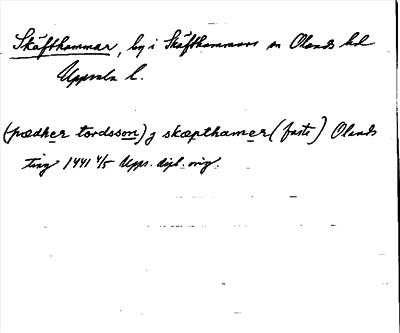 Skäfthammar, by i Skäfthammars sn Olands hd
Uppsala l.
(pædher tordsson) j skæpthamer (faste) Olands
ting 1441 4/5 Upps. dipl. orig.